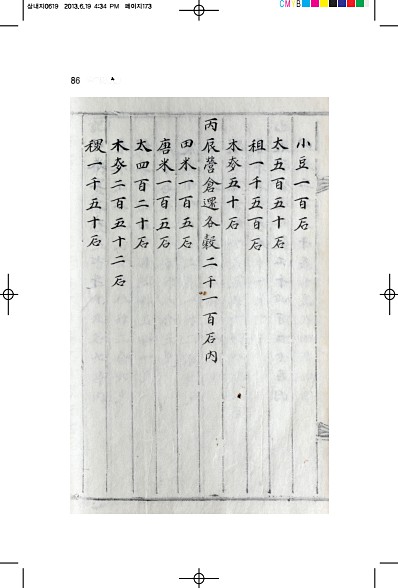 삼내지0619 2013.6.19 4:34 PM 페이지173
CMYB
86
小豆一百石
太五百五十石
租一千五百石
木麥五十石
丙辰營倉還各穀二千一百石內
田米一百五石
唐米一百五石
太四百二十石
木麥二百五十二石
稷一千五十石